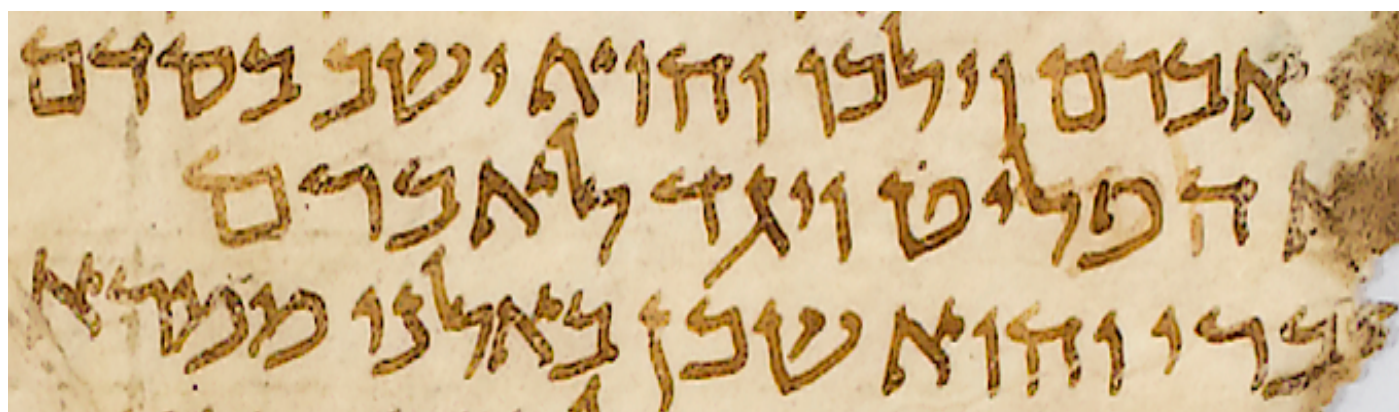 אברם וילכו והוא ישב בסדם
א הפליט ויגד לאברם
ברי והוא שכן באלני ממרא